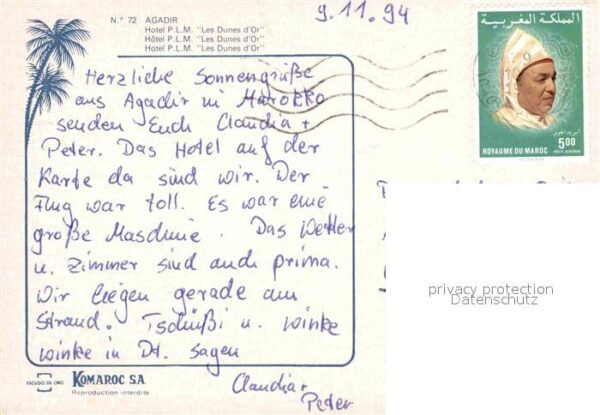 N.° 72 AGADIR
Hotel P.L.M. "Les Dunes d'Or"
Hôtel P.L.M. "Les Dunes d'Or"
Hotel P.L.M. "Les Dunes d'Or"
9.11.94
المملكة المغربية
البريد الجوي
5,00
ROYAUME DU MAROC
POSTE AERIENNE
Herzliche Sonnengrüße
aus Agadir in Marokko
senden Euch Claudia +
Peter. Das Hotel auf der
Karte da sind wir. Der
Flug war toll. Es war eine
große Maschine. Das Wetter
u. Zimmer sind auch prima.
Wir liegen gerade am
Strand. Tschüßi u. winke
winke in Dt. sagen
Claudia +
Peter
privacy protection
Datenschutz
ESCUDO DE ORO
KOMAROC S.A.
Reproduction interdite